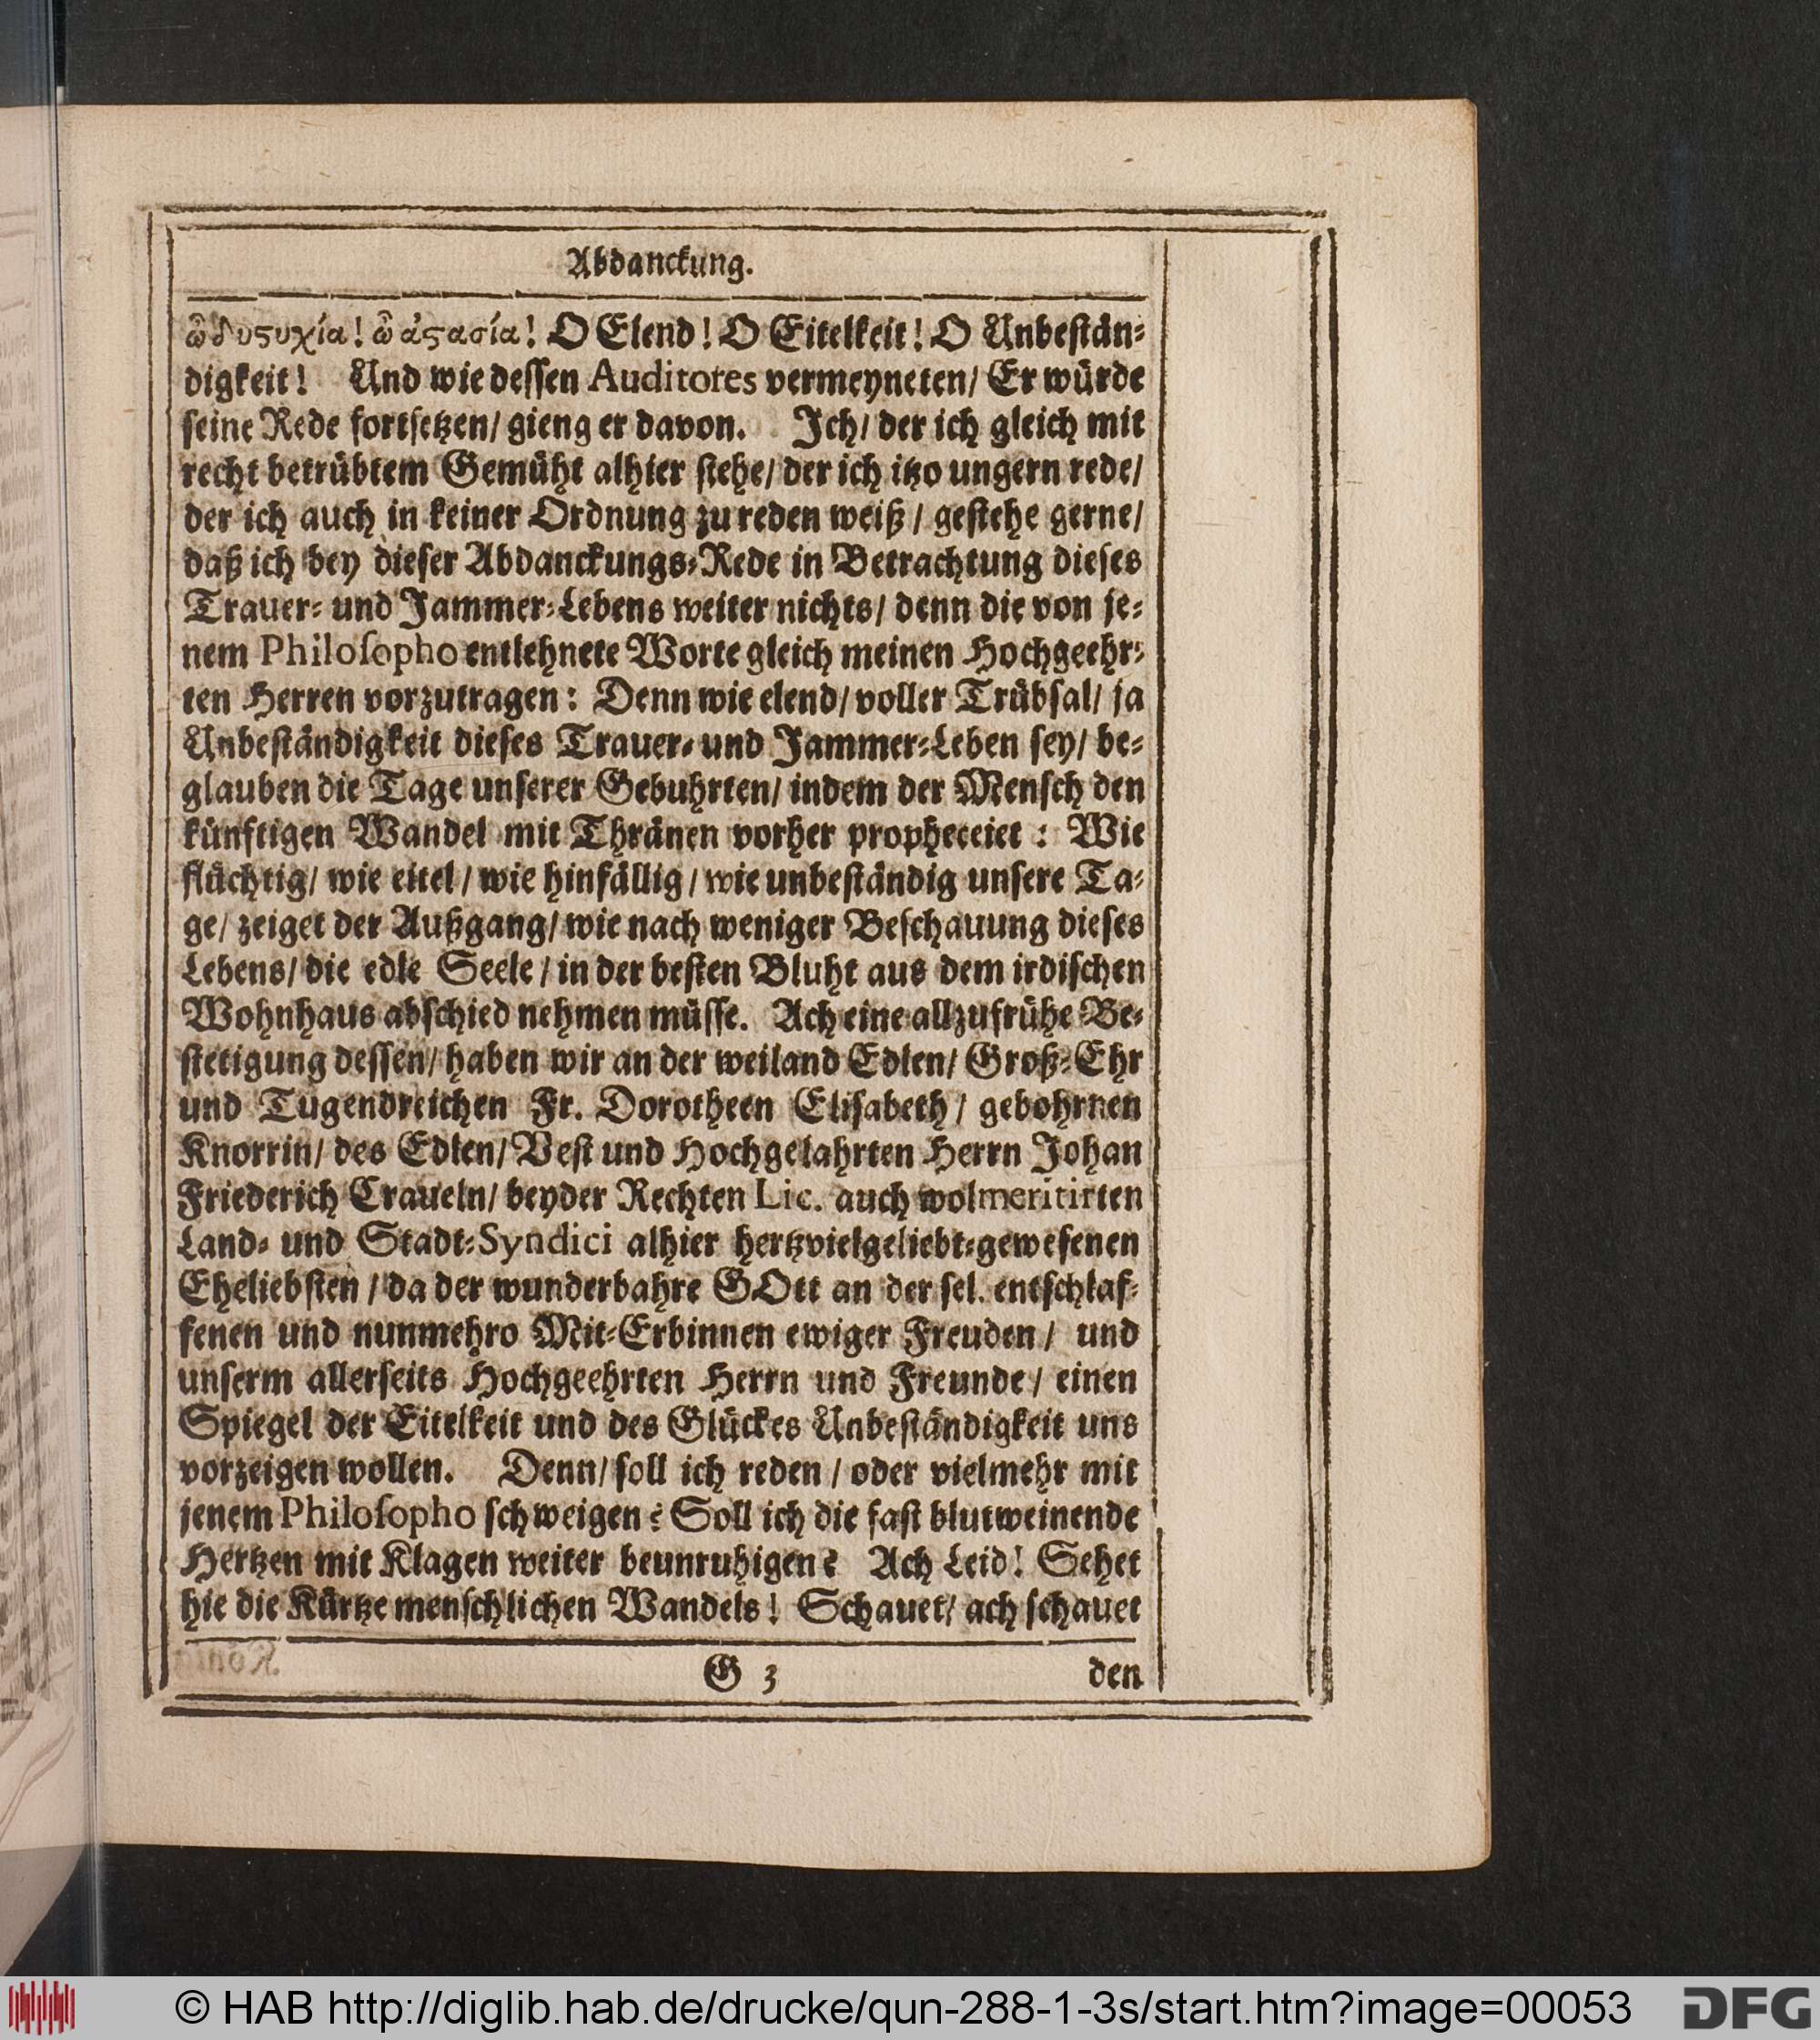 Abdanckung.
ὦ δυςυχία! ὦ ἀςασία! O Elend! O Eitelkeit! O Unbestän-
digkeit! Und wie dessen Auditores vermeyneten/ Er würde
seine Rede fortsetzen/ gieng er davon. Ich/ der ich gleich mit
recht betrübtem Gemüht alhier stehe/ der ich itzo ungern rede/
der ich auch in keiner Ordnung zu reden weiß/ gestehe gerne/
daß ich bey dieser Abdanckungs-Rede in Betrachtung dieses
Trauer- und Jammer-Lebens weiter nichts/ denn die von je-
nem Philosopho entlehnete Worte gleich meinen Hochgeehr-
ten Herren vorzutragen: Denn wie elend/ voller Trübsal/ ja
Unbeständigkeit dieses Trauer- und Jammer-Leben sey/ be-
glauben die Tage unserer Gebuhrten/ indem der Mensch den
künftigen Wandel mit Thränen vorher propheceiet: Wie
flüchtig/ wie eitel/ wie hinfällig/ wie unbeständig unsere Ta-
ge/ zeiget der Außgang/ wie nach weniger Beschauung dieses
Lebens/ die edle Seele/ in der besten Bluht aus dem irdischen
Wohnhaus abschied nehmen müsse. Ach eine allzufrühe Be-
stetigung dessen/ haben wir an der weiland Edlen/ Groß-Ehr
und Tugendreichen Fr. Dorotheen Elisabeth/ gebohrnen
Knorrin/ des Edlen/ Vest und Hochgelahrten Herrn Johan
Friederich Craueln/ beyder Rechten Lic. auch wolmeritirten
Land- und Stadt-Syndici alhier hertzvielgeliebt-gewesenen
Eheliebsten/ da der wunderbahre GOtt an der sel. entschlaf-
fenen und nunmehro Mit-Erbinnen ewiger Freuden/ und
unserm allerseits Hochgeehrten Herrn und Freunde/ einen
Spiegel der Eitelkeit und des Glückes Unbeständigkeit uns
vorzeigen wollen. Denn/ soll ich reden/ oder vielmehr mit
jenem Philosopho schweigen? Soll ich die fast blutweinende
Hertzen mit Klagen weiter beunruhigen? Ach Leid! Sehet
hie die Kürtze menschlichen Wandels! Schauet/ ach schauet
G 3
den
© HAB http://diglib.hab.de/drucke/qun-288-1-3s/start.htm?image=00053
DFG